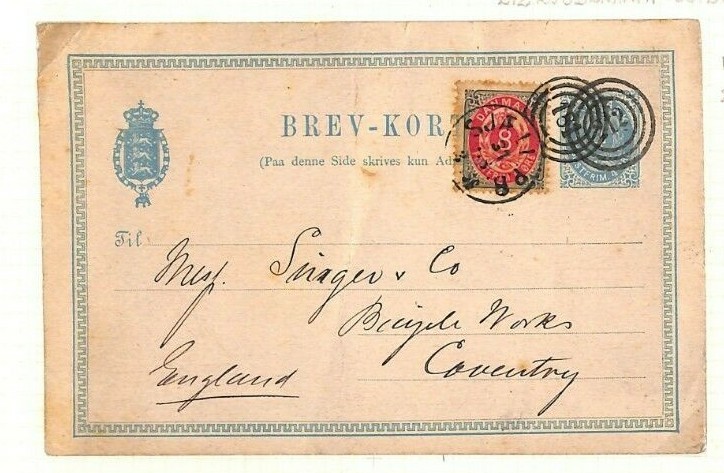 BREV-KOR
(Paa denne Side skrives kun Ad
DANMA
8
INTERIM. 4
Til
Messs. Singer & Co
Bicycle Works
Coventry
England